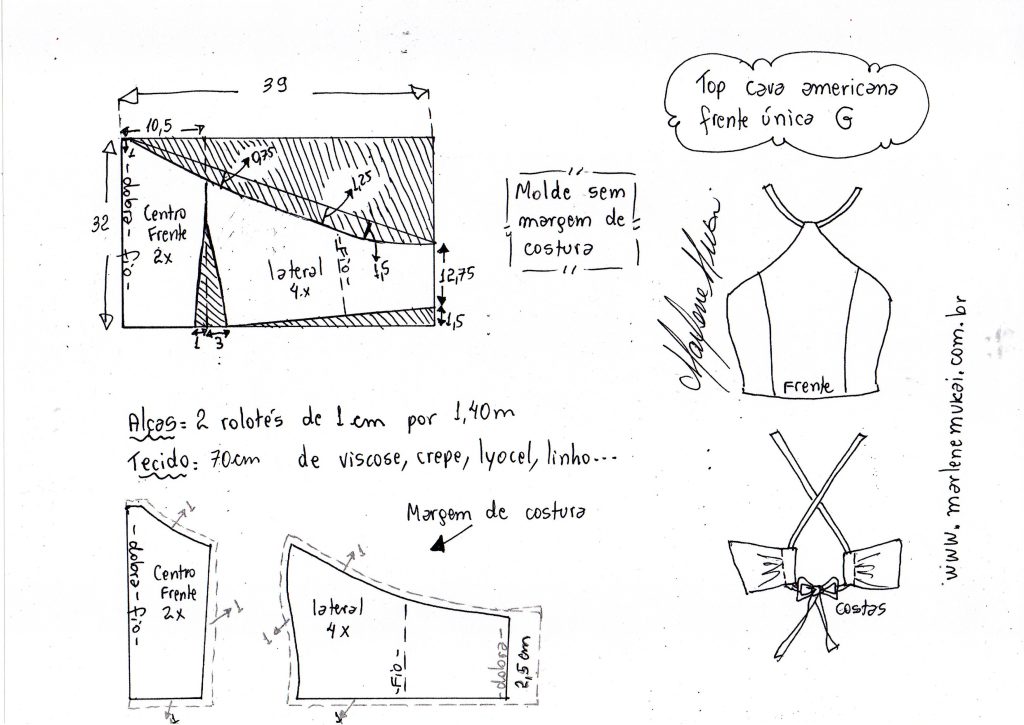 39
10,5
32
1
- dobra - fio -
Centro
Frente
2x
0,75
1,25
1,5
lateral
4x
- Fio -
12,75
1,5
1
3
Molde sem
margem de
costura
Top cava americana
frente única G
Marlene Mukai
Frente
www.marlenemukai.com.br
Alças: 2 rolotés de 1 cm por 1,40m
Tecido: 70cm de viscose, crepe, lyocel, linho...
Margem de costura
1
- dobra - fio -
Centro
Frente
2x
1
1
1
lateral
4x
1
- Fio -
- dobra -
2,5 cm
1
costas